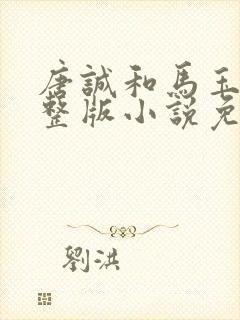 唐誠和馬玉
整版小說免
劉洪